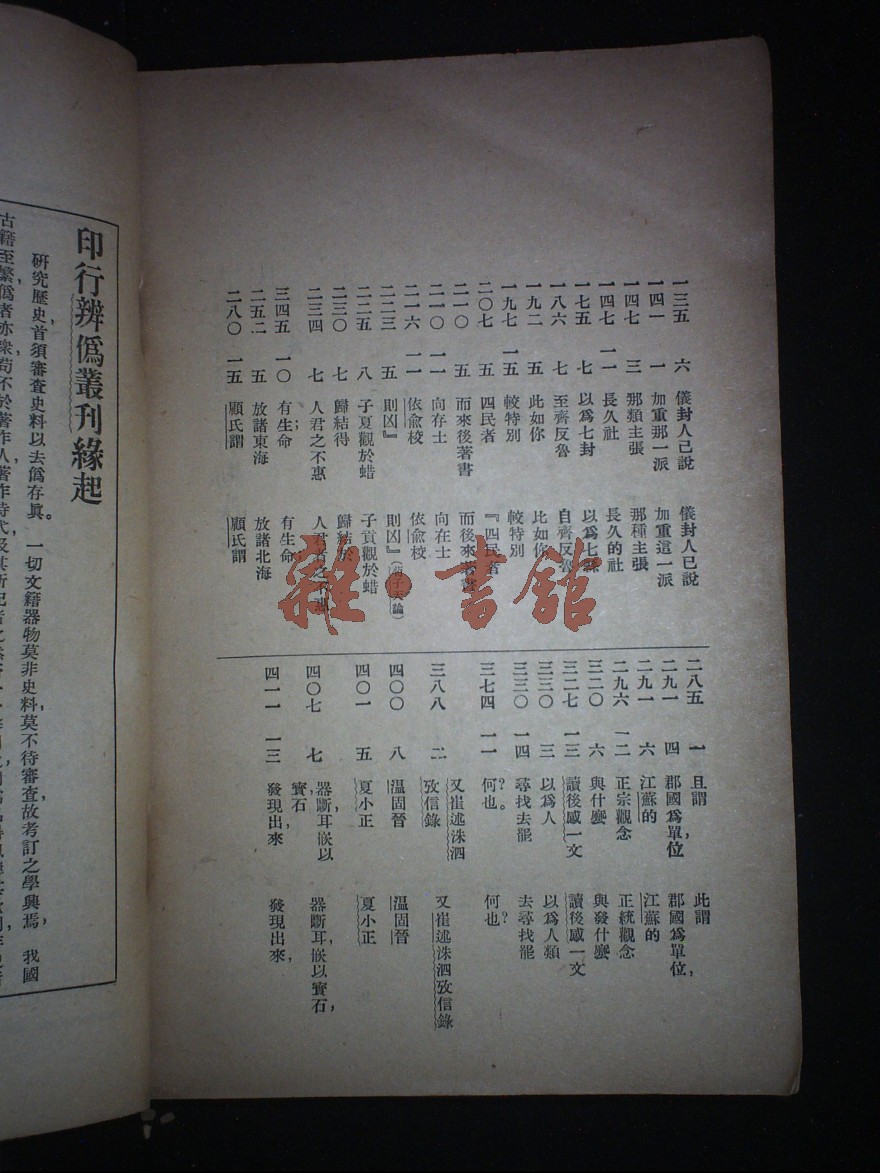 一三五 六 儀封人已說 儀封人已說
一四一 一 加重那一派 加重這一派
一四七 三 那類主張 那種主張
一四七 一一 長久社 長久的社
一七五 七 以爲七封 以爲七
一八六 七 至齊反魯 自齊反魯
一九二 五 此如你 比如你
一九七 一五 較特別 較特別
二〇七 五 四民者 『四民者
二一〇 五 而來後著書 而後來著書
二一〇 一一 向存士 向在士
二一六 一一 依兪校 依兪校
二二三 五 則凶』 則凶』(荀子天論)
二二五 八 子夏觀於蜡 子貢觀於蜡
二三〇 七 歸結得 歸結於
二三四 七 人君之不惠 人君者之不惠
三四五 一〇 有生命； 有生命，
二五二 五 放諸東海 放諸北海
二八〇 一五 顧氏謂 顧氏謂
二八五 一 且謂 此謂
二九一 四 郡國爲單位 郡國爲單位，
二九一 六 江蘇的 江蘇的
二九六 一二 正宗觀念 正統觀念
三二〇 六 與什麼 與發什麼
三二七 一三 讀後感一文 讀後感一文
三三〇 三 以爲人 以爲人類
三三〇 一四 尋找去罷 去尋找罷
三七四 一一 何也？。 何也？
三八八 二 又崔述洙泗攷信錄 又崔述洙泗攷信錄
四〇〇 八 温固晉 温固晉
四〇一 五 夏小正 夏小正
四〇七 七 器斷耳嵌以寳石， 器斷耳，嵌以寳石，
四一一 一三 發現出來 發現出來，
印行辨僞叢刊緣起
研究歷史，首須審查史料以去僞存眞。一切文籍器物莫非史料，莫不待審查，故考訂之學興焉，我國
古籍至繁，僞者亦衆，苟不於著作人，著作時代及其所記者
雜·書館